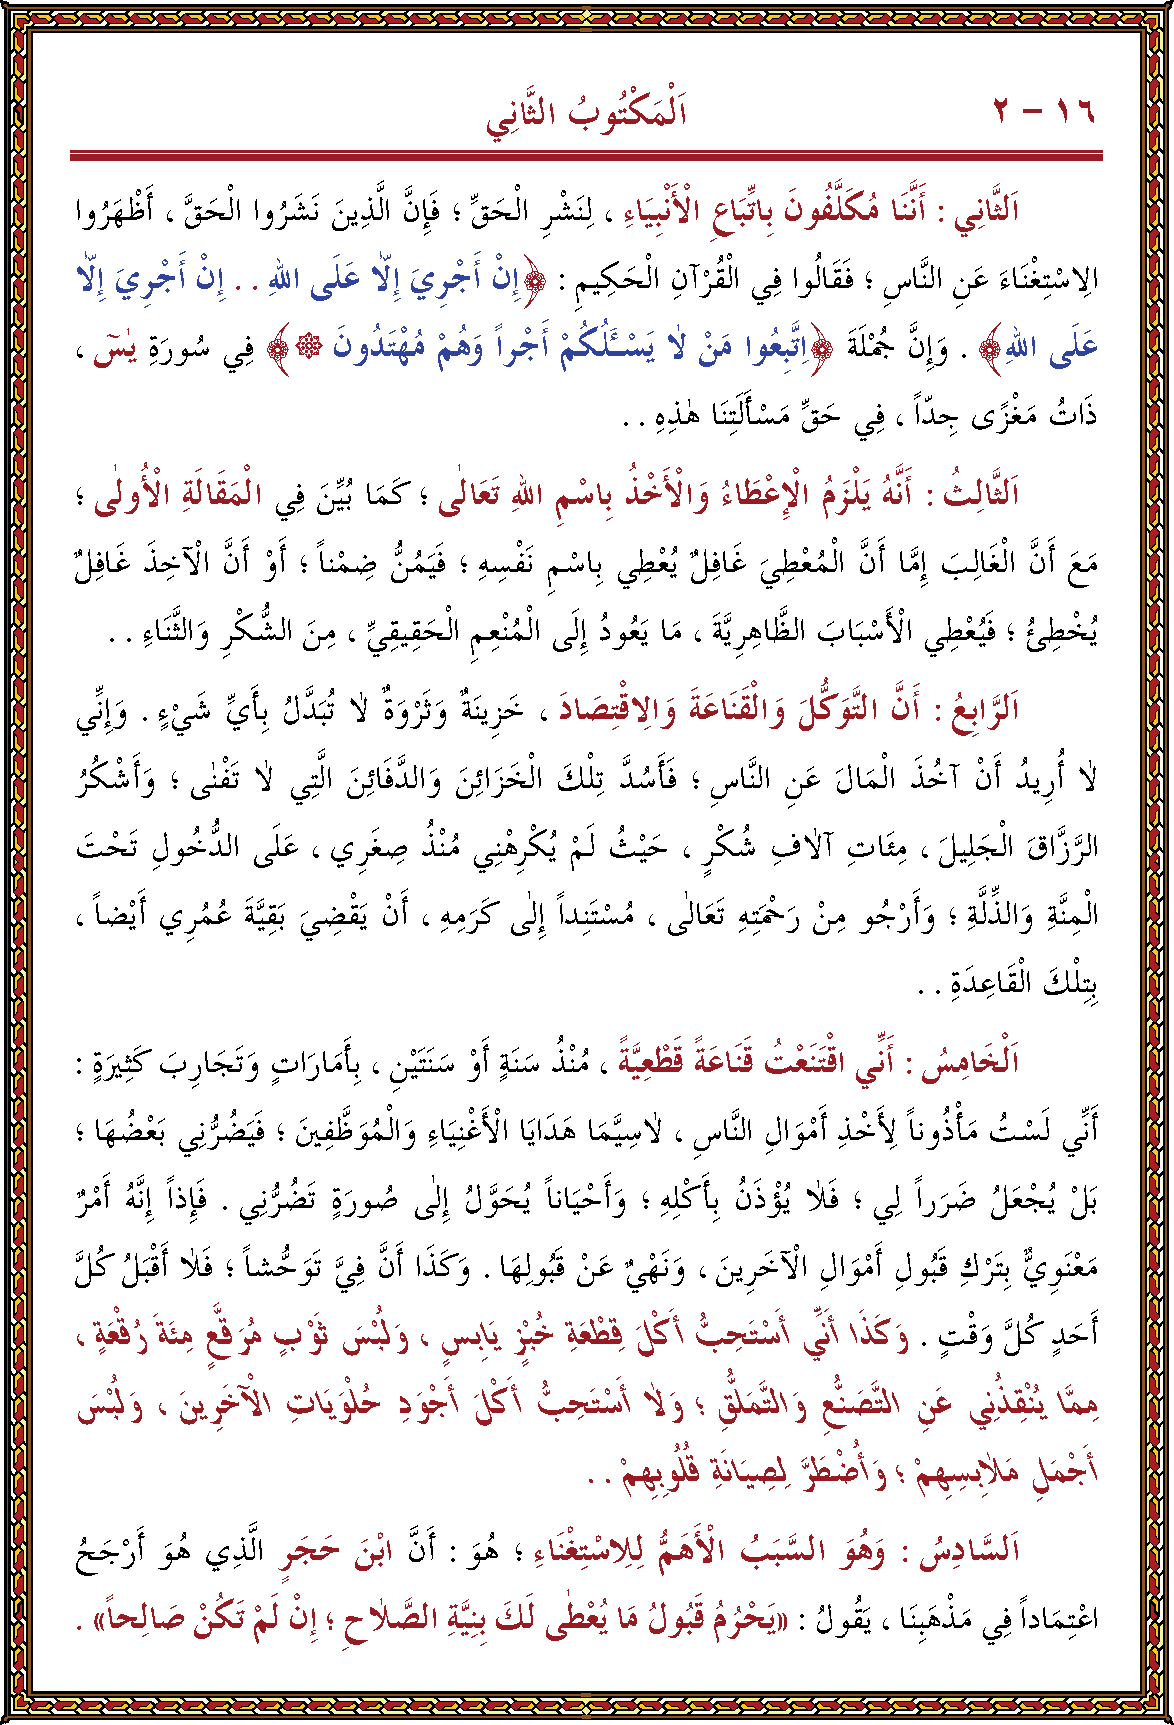 ١٦ – ٢
اَلْمَكْتُوبُ الثَّانِي
اَلثَّانِي : أَنَّنَا مُكَلَّفُونَ بِاتِّبَاعِ الْأَنْبِيَاءِ ، لِنَشْرِ الْحَقِّ ؛ فَإِنَّ الَّذِينَ نَشَرُوا الْحَقَّ ، أَظْهَرُوا
الاِسْتِغْنَاءَ عَنِ النَّاسِ ؛ فَقَالُوا فِي الْقُرْآنِ الْحَكِيمِ : ﴿إِنْ أَجْرِيَ إِلَّا عَلَى اللهِ . . إِنْ أَجْرِيَ إِلَّا
عَلَى اللهِ﴾ . وَإِنَّ جُمْلَةَ ﴿اِتَّبِعُوا مَنْ لَا يَسْـَٔلُكُمْ أَجْراً وَهُمْ مُهْتَدُونَ ۞﴾ فِي سُورَةِ يٰسٓ ،
ذَاتُ مَغْزًى جِدّاً ، فِي حَقِّ مَسْأَلَتِنَا هٰذِهِ . .
اَلثَّالِثُ : أَنَّهُ يَلْزَمُ الْإِعْطَاءُ وَالْأَخْذُ بِاسْمِ اللهِ تَعَالٰى ؛ كَمَا بُيِّنَ فِي الْمَقَالَةِ الْأُولٰى ؛
مَعَ أَنَّ الْغَالِبَ إِمَّا أَنَّ الْمُعْطِيَ غَافِلٌ يُعْطِي بِاسْمِ نَفْسِهِ ؛ فَيَمُنُّ ضِمْناً ؛ أَوْ أَنَّ الْآخِذَ غَافِلٌ
يُخْطِئُ ؛ فَيُعْطِي الْأَسْبَابَ الظَّاهِرِيَّةَ ، مَا يَعُودُ إِلَى الْمُنْعِمِ الْحَقِيقِيِّ ، مِنَ الشُّكْرِ وَالثَّنَاءِ . .
اَلرَّابِعُ : أَنَّ التَّوَكُّلَ وَالْقَنَاعَةَ وَالاِقْتِصَادَ ، خَزِينَةٌ وَثَرْوَةٌ لَا تُبَدَّلُ بِأَيِّ شَيْءٍ . وَإِنِّي
لَا أُرِيدُ أَنْ آخُذَ الْمَالَ عَنِ النَّاسِ ؛ فَأَسُدَّ تِلْكَ الْخَزَائِنَ وَالدَّفَائِنَ الَّتِي لَا تَفْنٰى ؛ وَأَشْكُرُ
الرَّزَّاقَ الْجَلِيلَ ، مِئَاتِ آلَافِ شُكْرٍ ، حَيْثُ لَمْ يُكْرِهْنِي مُنْذُ صِغَرِي ، عَلَى الدُّخُولِ تَحْتَ
الْمِنَّةِ وَالذِّلَّةِ ؛ وَأَرْجُو مِنْ رَحْمَتِهِ تَعَالٰى ، مُسْتَنِداً إِلٰى كَرَمِهِ ، أَنْ يَقْضِيَ بَقِيَّةَ عُمُرِي أَيْضاً ،
بِتِلْكَ الْقَاعِدَةِ . .
اَلْخَامِسُ : أَنِّي اقْتَنَعْتُ قَنَاعَةً قَطْعِيَّةً ، مُنْذُ سَنَةٍ أَوْ سَنَتَيْنِ ، بِأَمَارَاتٍ وَتَجَارِبَ كَثِيرَةٍ :
أَنِّي لَسْتُ مَأْذُوناً لِأَخْذِ أَمْوَالِ النَّاسِ ، لَاسِيَّمَا هَدَايَا الْأَغْنِيَاءِ وَالْمُوَظَّفِينَ ؛ فَيَضُرُّنِي بَعْضُهَا ؛
بَلْ يُجْعَلُ ضَرَراً لِي ؛ فَلَا يُؤْذَنُ بِأَكْلِهِ ؛ وَأَحْيَاناً يُحَوَّلُ إِلٰى صُورَةٍ تَضُرُّنِي . فَإِذاً إِنَّهُ أَمْرٌ
مَعْنَوِيٌّ بِتَرْكِ قَبُولِ أَمْوَالِ الْآخَرِينَ ، وَنَهْيٌ عَنْ قَبُولِهَا . وَكَذَا أَنَّ فِيَّ تَوَحُّشاً ؛ فَلَا أَقْبَلُ كُلَّ
أَحَدٍ كُلَّ وَقْتٍ . وَكَذَا أَنِّي أَسْتَحِبُّ أَكْلَ قِطْعَةِ خُبْزٍ يَابِسٍ ، وَلُبْسَ ثَوْبٍ مُرَقَّعٍ مِئَةَ رُقْعَةٍ ،
مِمَّا يُنْقِذُنِي عَنِ التَّصَنُّعِ وَالتَّمَلُّقِ ؛ وَلَا أَسْتَحِبُّ أَكْلَ أَجْوَدِ حُلْوَيَاتِ الْآخَرِينَ ، وَلُبْسَ
أَجْمَلِ مَلَابِسِهِمْ ؛ وَأُضْطَرَّ لِصِيَانَةِ قُلُوبِهِمْ . .
اَلسَّادِسُ : وَهُوَ السَّبَبُ الْأَهَمُّ لِلاِسْتِغْنَاءِ ؛ هُوَ : أَنَّ ابْنَ حَجَرٍ الَّذِي هُوَ أَرْجَحُ
اعْتِمَاداً فِي مَذْهَبِنَا ، يَقُولُ : «يَحْرُمُ قَبُولُ مَا يُعْطٰى لَكَ بِنِيَّةِ الصَّلَاحِ ؛ إِنْ لَمْ تَكُنْ صَالِحاً» .